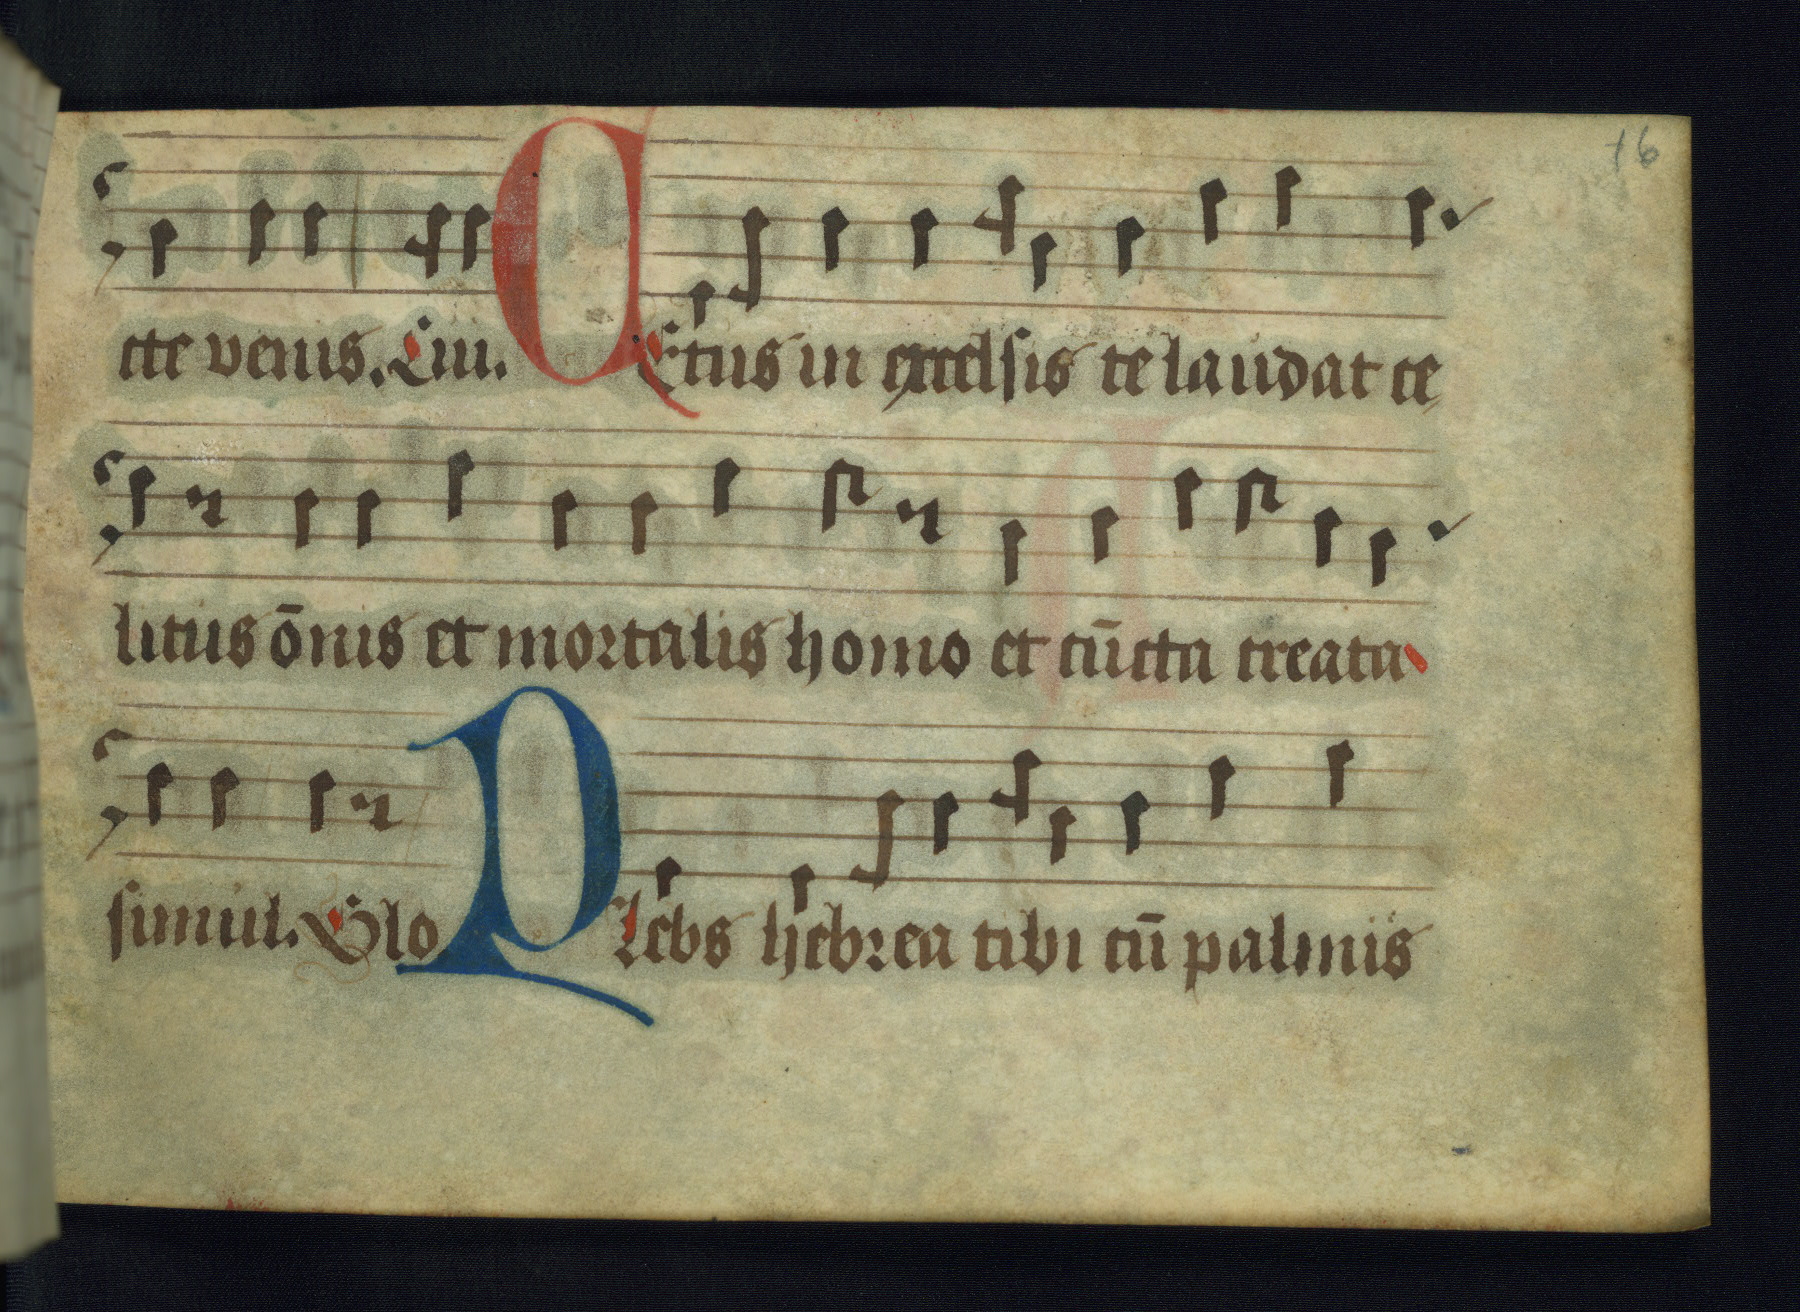 16
cte venis. Lui. CEtus in excelsis te laudat ce
litus om̄nis et mortalis homo et cūcta creata
simul. Glo PLebs hebrea tibi cū palmis